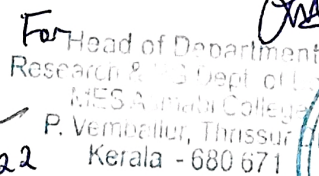 For
Head of Department
Research & PG Dept. of
MES Asmabi College
P. Vemballur, Thrissur
22 Kerala - 680 671